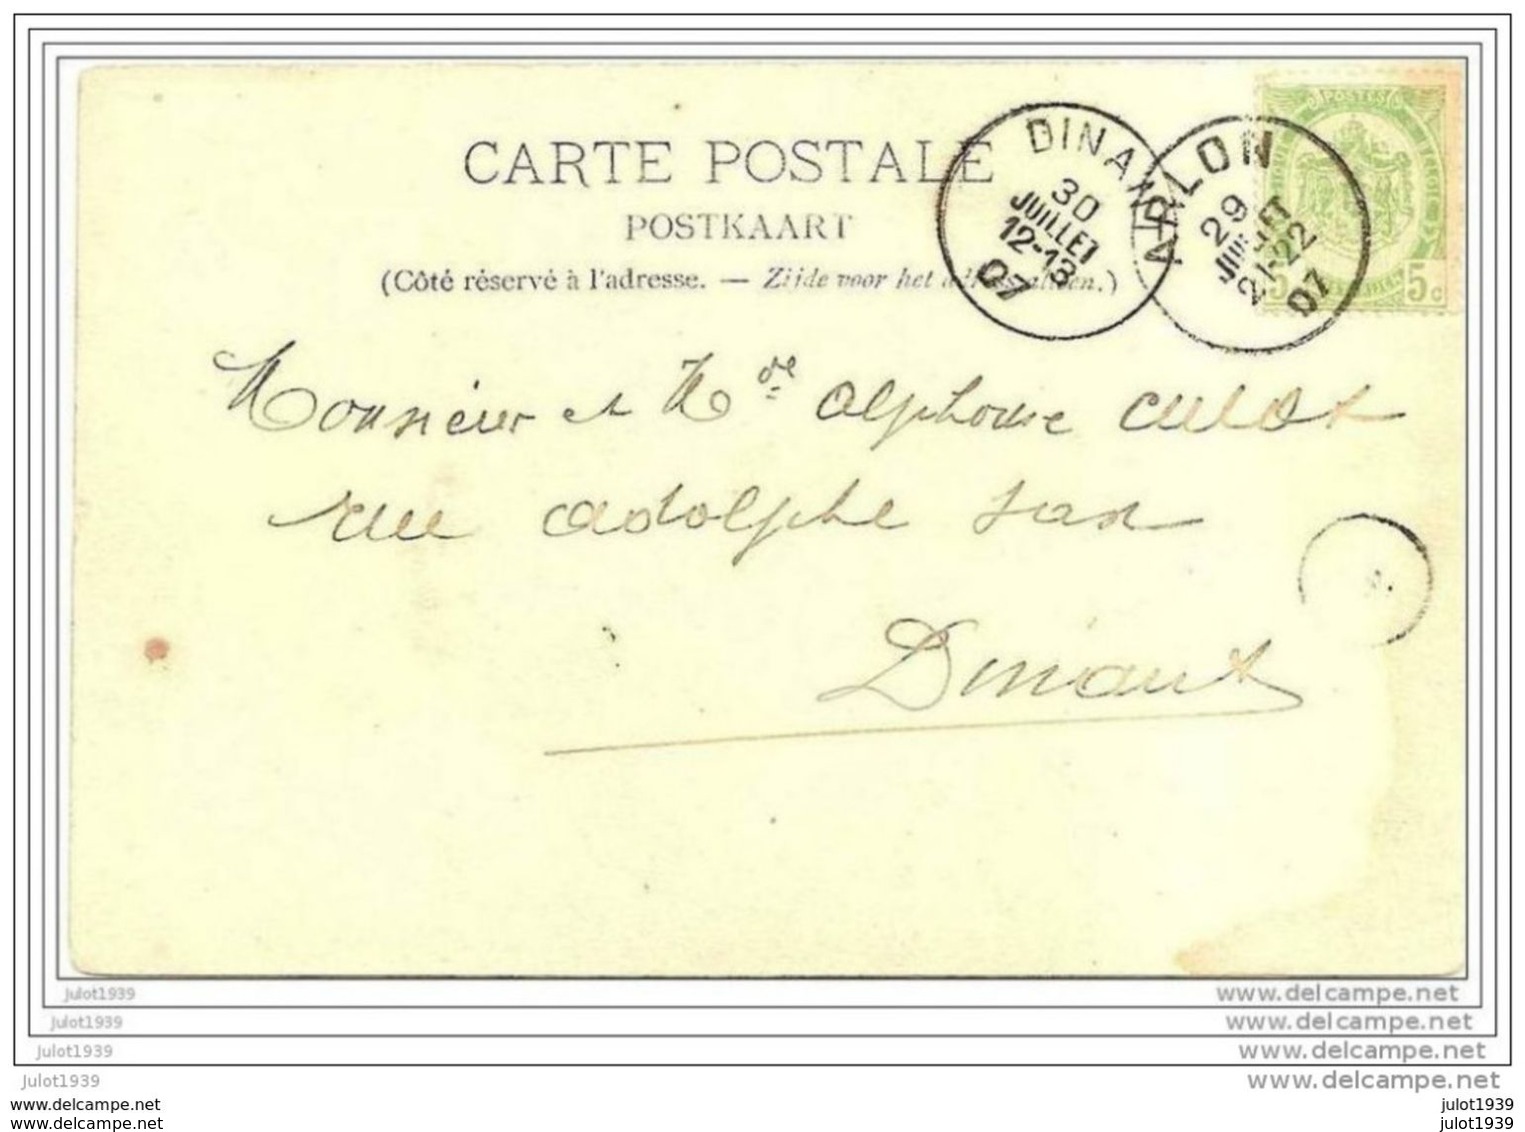 CARTE POSTALE
POSTKAART
(Côté réservé à l'adresse. — Zijde voor het adres alleen.)
DINANT
30
JUILLET
12-13
07
ARLON
29
JUILLET
21-22
07
POSTES
5 5c
Monsieur et Mde Alphonse Culot
rue Adolphe Sax
Dinant
julot1939 www.delcampe.net
julot1939 www.delcampe.net
julot1939 www.delcampe.net
julot1939 www.delcampe.net
www.delcampe.net julot1939
www.delcampe.net julot1939